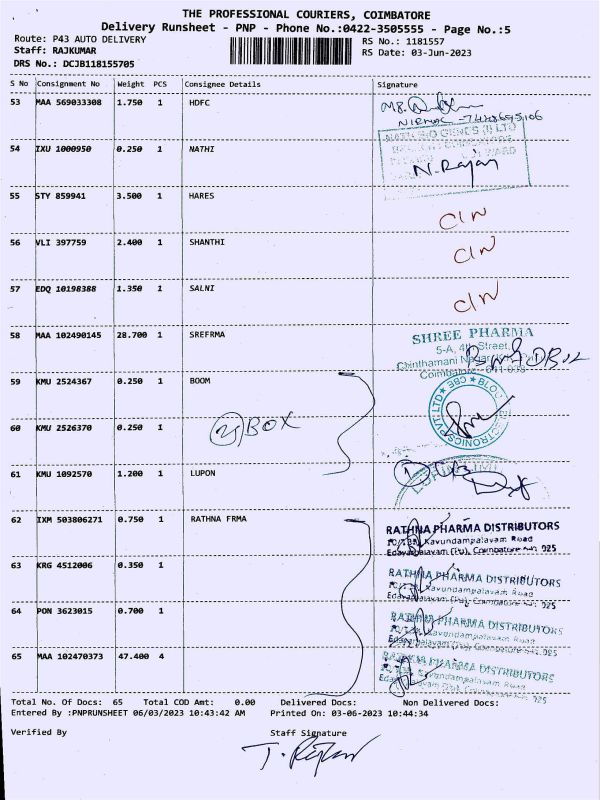 THE PROFESSIONAL COURIERS, COIMBATORE
Delivery Runsheet - PNP - Phone No.:0422-3505555 - Page No.:5
Route: P43 AUTO DELIVERY
RS No.: 1181557
Staff: RAJKUMAR
RS Date: 03-Jun-2023
DRS No.: DCJB118155705
S No Consignment No Weight PCS Consignee Details Signature
53 MAA 569033308 1.750 1 HDFC
54 IXU 1000950 0.250 1 NATHI
N. Rajan
55 STY 859941 3.500 1 HARES
C/N
56 VLI 397759 2.400 1 SHANTHI
C/N
57 EDQ 10198388 1.350 1 SALNI
C/N
58 MAA 102490145 28.700 1 SREFRMA
SHREE PHARMA
5-A, 4th Street,
Chinthamani Nagar
59 KMU 2524367 0.250 1 BOOM
60 KMU 2526370 0.250 1
BOX
61 KMU 1092570 1.200 1 LUPON
62 IXM 503806271 0.750 1 RATHNA FRMA
RATHNA PHARMA DISTRIBUTORS
Kavundampalayam Road
63 KRG 4512006 0.350 1
RATHNA PHARMA DISTRIBUTORS
Kavundampalayam Road
64 PON 3623015 0.700 1
RATHNA PHARMA DISTRIBUTORS
Kavundampalayam Road
65 MAA 102470373 47.400 4
RATHNA PHARMA DISTRIBUTORS
Kavundampalayam Road
Total No. Of Docs: 65 Total COD Amt: 0.00 Delivered Docs: Non Delivered Docs:
Entered By :PNPRUNSHEET 06/03/2023 10:43:42 AM Printed On: 03-06-2023 10:44:34
Verified By Staff Signature